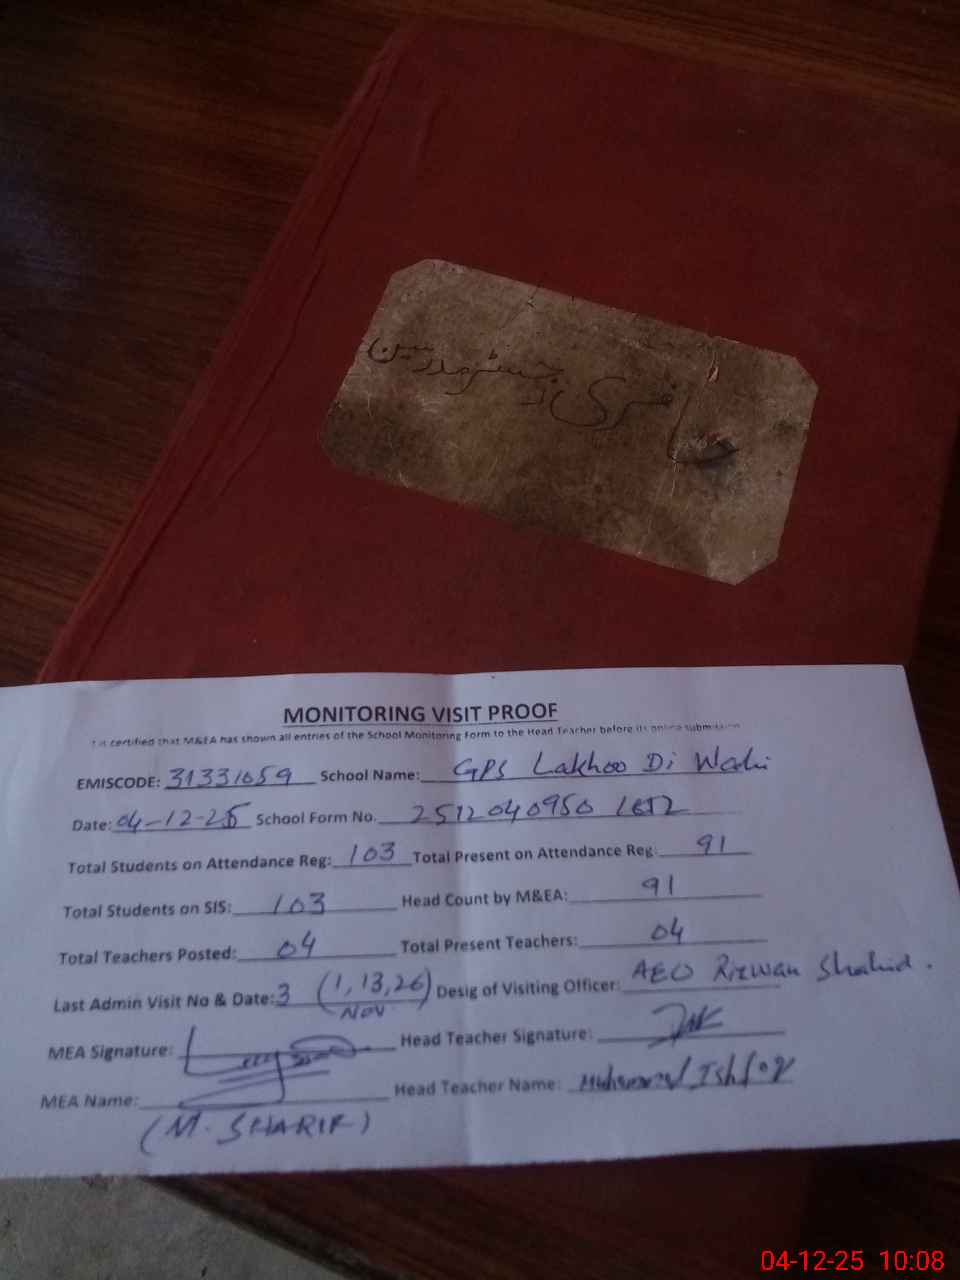 حاضری رجسٹر مدرسین
MONITORING VISIT PROOF
It is certified that M&EA has shown all entries of the School Monitoring Form to the Head Teacher before its online submission
EMISCODE: 31331059 School Name: GPS Lakhoo Di Wahi
Date: 04-12-25 School Form No. 2512040950
Total Students on Attendance Reg: 103 Total Present on Attendance Reg: 91
Total Students on SIS: 103 Head Count by M&EA: 91
Total Teachers Posted: 04 Total Present Teachers: 04
Last Admin Visit No & Date: 3 (1,13,26) Desig of Visiting Officer: AEO Rizwan Shahid.
Nov
MEA Signature: Head Teacher Signature:
MEA Name: Head Teacher Name: Muhammad Ishfaq
(M. SHARIF)
04-12-25 10:08